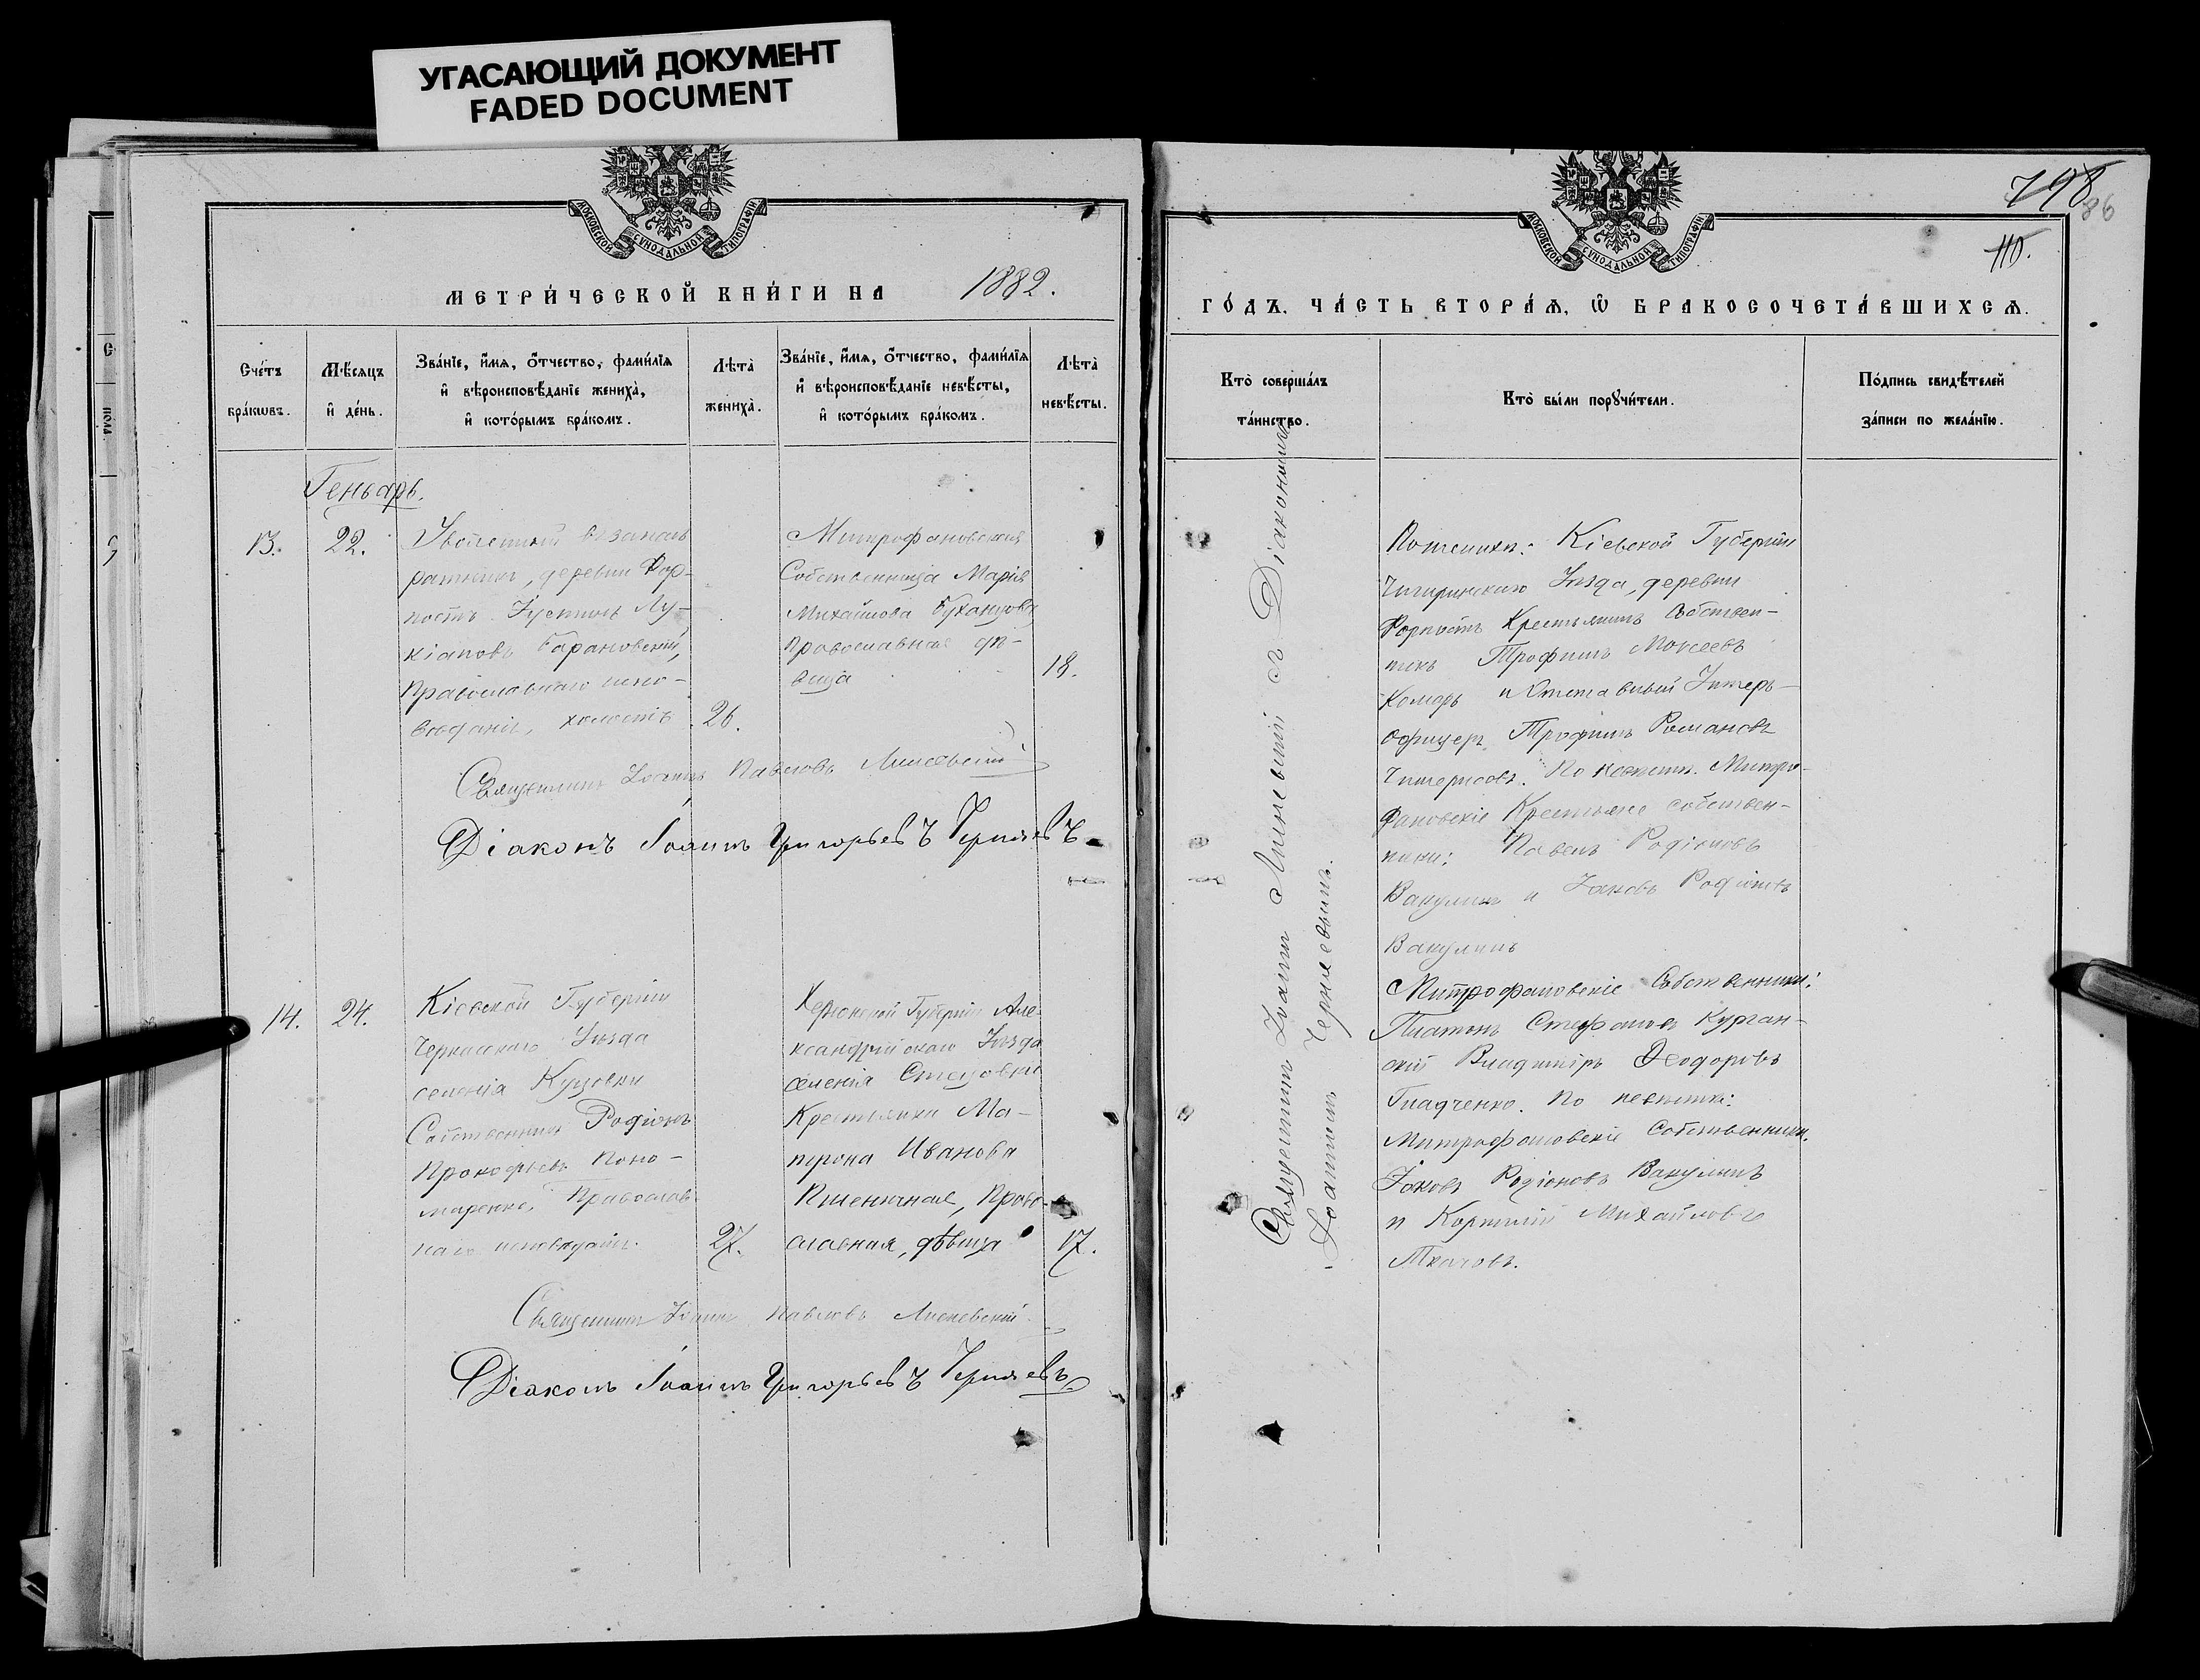 УГАСАЮЩИЙ ДОКУМЕНТ
FADED DOCUMENT
МОСКОВСКОЙ СѴНОДАЛЬНОЙ ТИПОГРАФІИ
МЕТРИ́ЧЕСКОЙ КНИ́ГИ НА 1882.
Сче́тъ
бра́кωвъ.
Мѣ́сяцъ
и҆ де́нь.
Зва́нїе, и҆́мѧ, ѻ҆́тчество, фами́лїѧ
и҆ вѣроисповѣ́данїе женихà,
и҆ кото́рымъ бра́комъ.
Лѣтà
женихà.
Зва́нїе, и҆́мѧ, ѻ҆́тчество, фами́лїѧ
и҆ вѣроисповѣ́данїе невѣ́сты,
и҆ кото́рымъ бра́комъ.
Лѣтà
невѣ́сты.
Геньарь.
13.
22.
ратникъ, деревни Фор-
постъ Іустинъ Лу-
кіановъ Барановскій,
Православнаго испо-
вѣданія, холостъ
26.
Митрофановская
Собственница Марія
Михайлова
православная дѣ-
вица
18.
Священникъ Іоаннъ Павловъ
Діаконъ Іоаннъ Григорьевъ Черняевъ
14.
24.
Кіевской Губерніи
Черкасскаго Уѣзда
селенія Куцовки
Собственникъ Родіонъ
Прокофьевъ Поно-
маренко, Православ
наго исповѣданія.
27.
Херсонской Губерніи Але-
ксандрійскаго Уѣзда
селенія Стецовки
Крестьянка Ма-
трона Иванова
Пшеничная, Право-
славная, дѣвица
17.
Священникъ Іоаннъ Павловъ
Діаконъ Іоаннъ Григорьевъ Черняевъ
798
86
110.
МОСКОВСКОЙ СѴНОДАЛЬНОЙ ТИПОГРАФІИ
ГО́ДЪ, ЧА́СТЬ ВТОРА́Ѧ, Ѽ БРАКОСОЧЕТА́ВШИХСѦ.
Кто̀ соверша́лъ
та́инство.
Кто̀ бы́ли порꙋчи́тели.
По́дпись свидѣ́телей
за́писи по жела́нїю.
Священникъ Іоаннъ съ Діакономъ
Іоанномъ Черняевымъ.
По женихѣ: Кіевской Губерніи
Чигиринскаго Уѣзда, деревни
Форпостъ Крестьянинъ Собствен-
никъ Трофимъ Моисеевъ
Комаръ и Отставный Унтеръ-
Офицеръ Трофимъ Романовъ
По невѣстѣ. Митро-
фановскіе Крестьяне собствен-
ники: Павелъ Родіоновъ
Вакулинъ и Іаковъ Родіоновъ
Вакулинъ
Митрофановскіе Собственники:
Платонъ Стефановъ Курган-
скій Владиміръ Ѳеодоровъ
Гладченко. По невѣстѣ:
Митрофановскіе Собственники.
Іаковъ Родіоновъ Вакулинъ
и Корнилій Михайловъ
Ткачовъ.